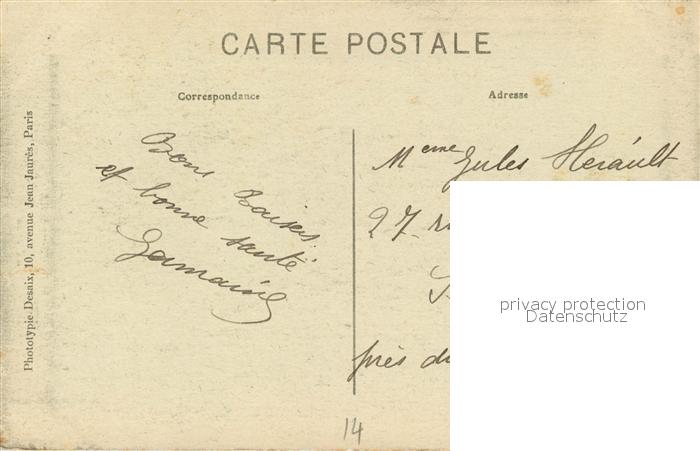 CARTE POSTALE
Correspondance
Adresse
Bons Baisers
et bonne santé
Germaine
Mme Jules Herault
27
près du
privacy protection
Datenschutz
14
Phototypie Desaix, 10, avenue Jean Jaurès, Paris